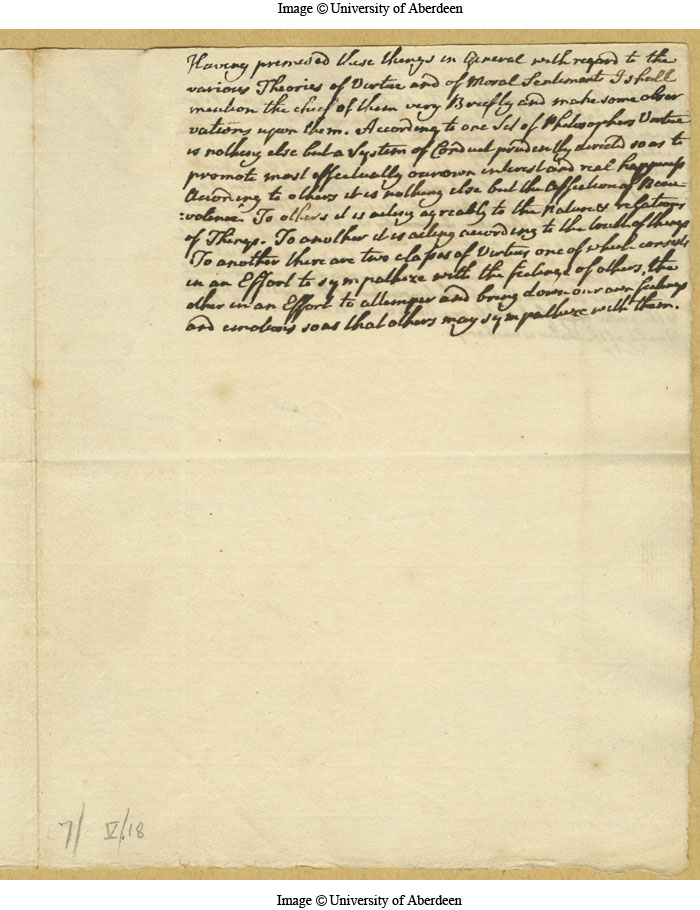 Image © University of Aberdeen
Having premised these things in General with regard to the
various Theories of Virtue and of Moral Sentiment I shall
mention the chief of them very Breefly and make some obser
vations upon them. According to one Set of Philosophers Virtue
is nothing else but a System of Conduct prudently directed so as to
promote most effectually our own interest and real happiness
According to others it is nothing else but the Affection of Bene
:volence. To others it is acting agreably to the Natures & relations
of Things. To another it is acting according to the truth of things
To another there are two classes of Virtues one of which consists
in an Effort to sympathize with the feelings of others, the
other in an Effort to attemper and bring down our own feelings
and emotions so as that others may sympathize with them.
7/ V/.18
Image © University of Aberdeen